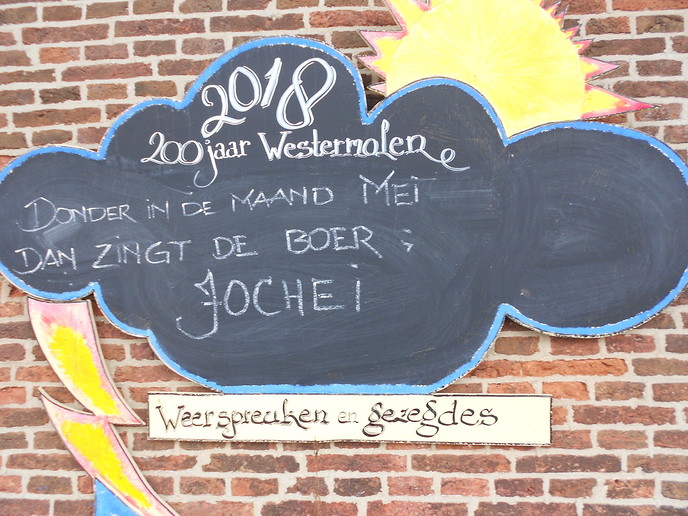 2018
200 jaar Westermolen
DONDER IN DE MAAND MEI
DAN ZINGT DE BOER ;
JOCHEI
Weerspreuken en gezegdes